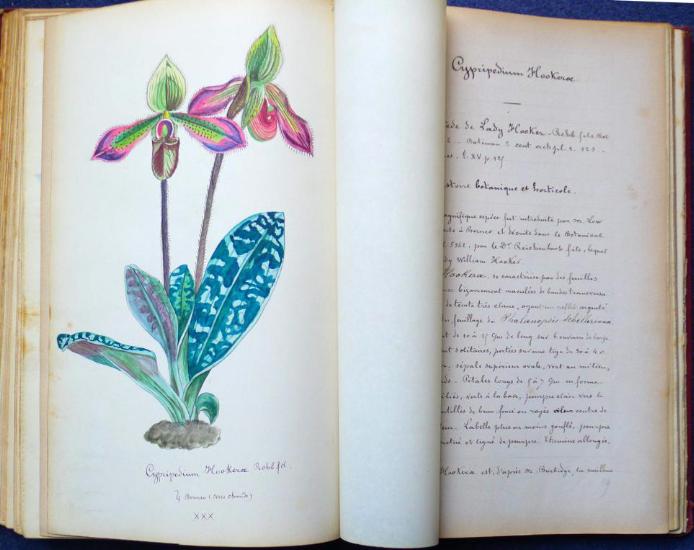 Cypripedium Hookeræ Rchb. fil.
Bornéo (serre chaude)
XXX
Cypripedium Hookeræ
de Lady Hooker - Reichb. fils Bot
Bateman 2 cent orch. pl. t. 123
t. XV p. 125
botanique et horticole.
magnifique espèce fut introduite par Mr Low
à Bornéo et décrite dans le Botanical
t. 5362, par le Dr Reichenbach fils, lequel
Lady William Hooker
Hookeræ, se caractérise par des feuilles
bizarrement maculées de bandes transverses
de teinte très claire, ayant un reflet argenté
du feuillage du Phalænopsis Schilleriana
de 10 à 15 cm de long sur 4 environ de large
solitaires, portées sur une tige de 30 à 40
sépale supérieur ovale, vert au milieu,
Pétales longs de 5 à 7 cm en forme
verts à la base, pourpre clair vers le
de brun foncé ou rayés centre de
Labelle plus ou moins gonflé, pourpre
et ligné de pourpre. Etamine allongée,
Hookeræ est, d'après Mr Burbidge, la meilleure